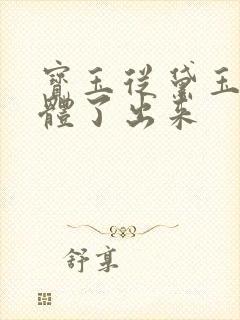 寶玉從黛玉
體了出來
舒享